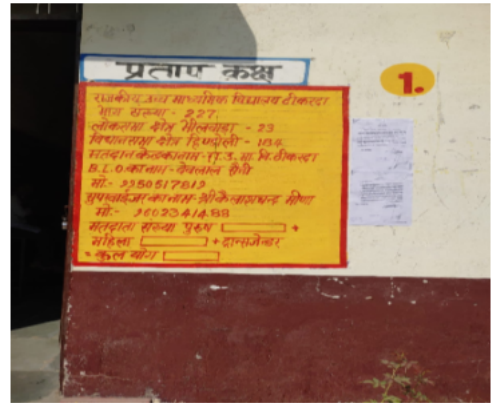 प्रताप कक्ष
1.
राजकीय उच्च माध्यमिक विद्यालय टीकरदा
भाग संख्या - 227
लोकसभा क्षेत्र भीलवाड़ा - 23
विधानसभा क्षेत्र हिण्डोली - 184
मतदान केन्द्र का नाम - रा. उ. मा. वि. टीकरदा
B.L.O का नाम - देवलाल सैनी
मो:- 9950517819
सुपरवाईजर का नाम - श्री कैलाशचन्द मीणा
मो:- 9602341488
मतदाता संख्या पुरुष +
महिला + ट्रान्सजेन्डर
= कुल योग